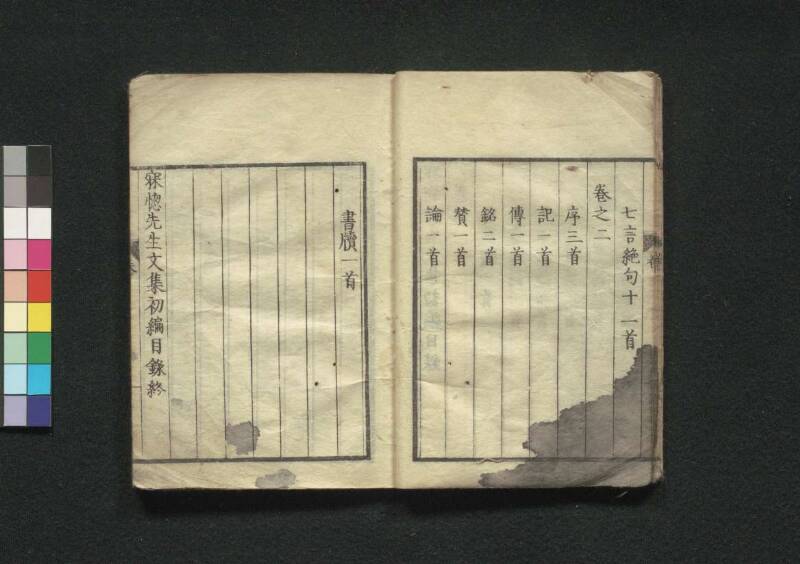 七言絶句十一首
卷之二
序三首
記一首
傳一首
銘二首
賛一首
論一首
書牘一首
寐惚先生文集初編目錄終